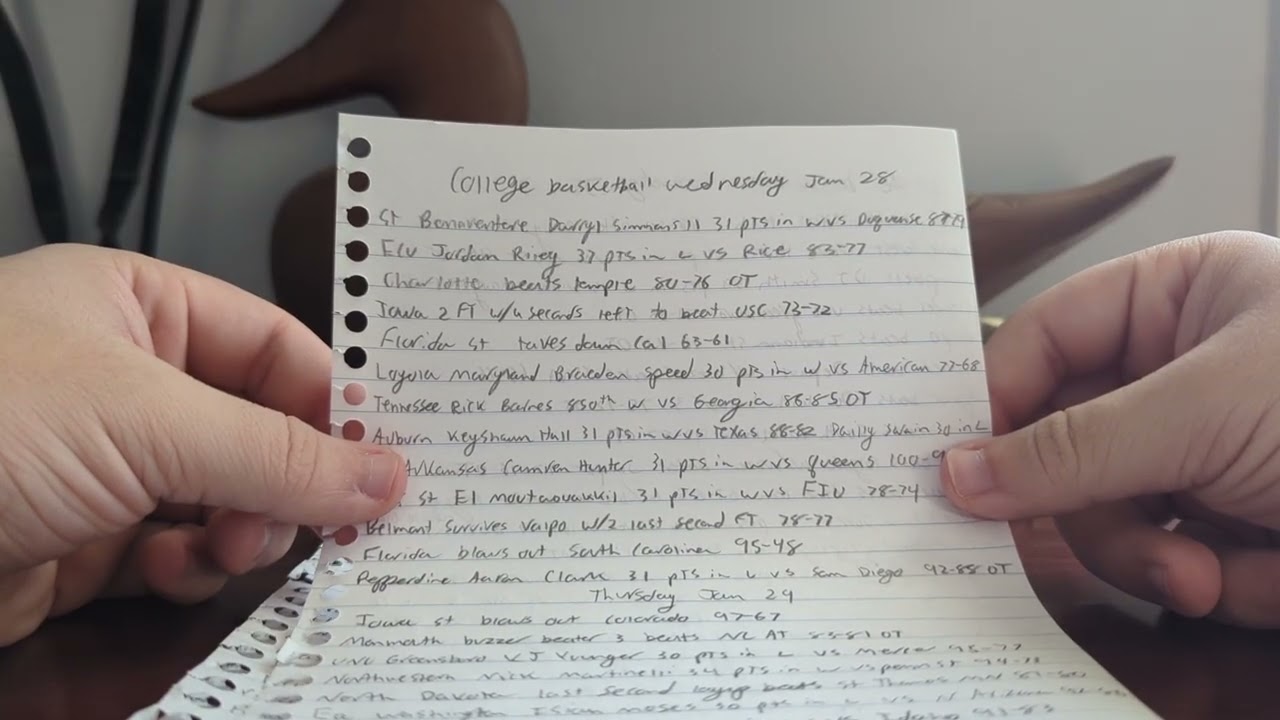 College basketball wednesday Jan 28
St Benaventere Darryl Simmons II 31 pts in w vs Duquense
ECU Jordan Riley 37 pts in L vs Rice 83-77
Charlotte beats Tempre 80-76 OT
Iowa 2 FT w/4 seconds left to beat USC 73-72
Florida st taves down Cal 63-61
Loyola maryland Braeden speed 30 pts in w vs American 77-68
Tennessee Rick Balnes 850th w vs Georgia 86-85 OT
Auburn Keyshawn Hall 31 pts in w vs Texas 88-82 Dailly Swain 30 in L
Arkansas Camren Hunter 31 pts in w vs queens 100-9
st El moutaouakkil 31 pts in w vs FIU 78-74
Belmont survives Valpo w/2 last second FT 78-77
Florida blows out South Carolina 95-48
Pepperdine Aaron Clark 31 pts in L vs San Diego 92-88 OT
Thursday Jan 29
Iowa st blows out Colorado 97-67
Monmouth buzzer beater 3 beats NC AT OT
UNC Greensboro KJ Younger 30 pts in L vs Mercer
Northwestern Nick Martinelli 34 pts in w vs penn st
North Dakota last second layup beats St Thomas MN
Ea washington Isiah moses 30 pts in L vs
Idaho